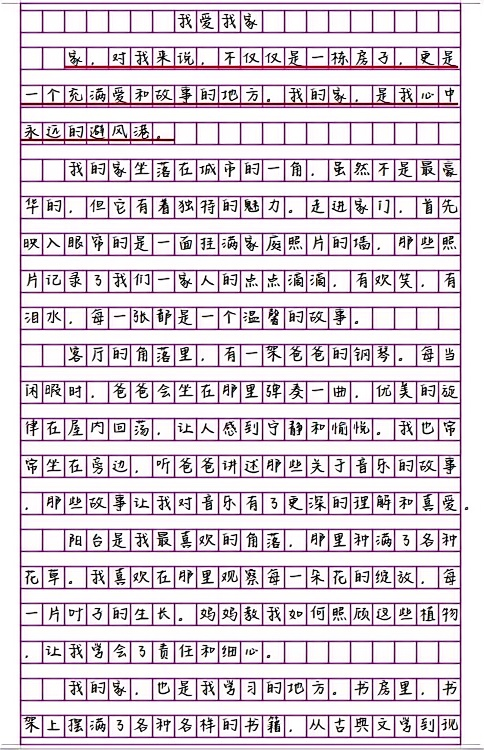 我爱我家
家，对我来说，不仅仅是一栋房子，更是
一个充满爱和故事的地方。我的家，是我心中
永远的避风港。
我的家坐落在城市的一角，虽然不是最豪
华的，但它有着独特的魅力。走进家门，首先
映入眼帘的是一面挂满家庭照片的墙，那些照
片记录了我们一家人的点点滴滴，有欢笑，有
泪水，每一张都是一个温馨的故事。
客厅的角落里，有一架爸爸的钢琴。每当
闲暇时，爸爸会坐在那里弹奏一曲，优美的旋
律在屋内回荡，让人感到宁静和愉悦。我也常
常坐在旁边，听爸爸讲述那些关于音乐的故事
，那些故事让我对音乐有了更深的理解和喜爱。
阳台是我最喜欢的角落，那里种满了各种
花草。我喜欢在那里观察每一朵花的绽放，每
一片叶子的生长。妈妈教我如何照顾这些植物
，让我学会了责任和细心。
我的家，也是我学习的地方。书房里，书
架上摆满了各种各样的书籍，从古典文学到现